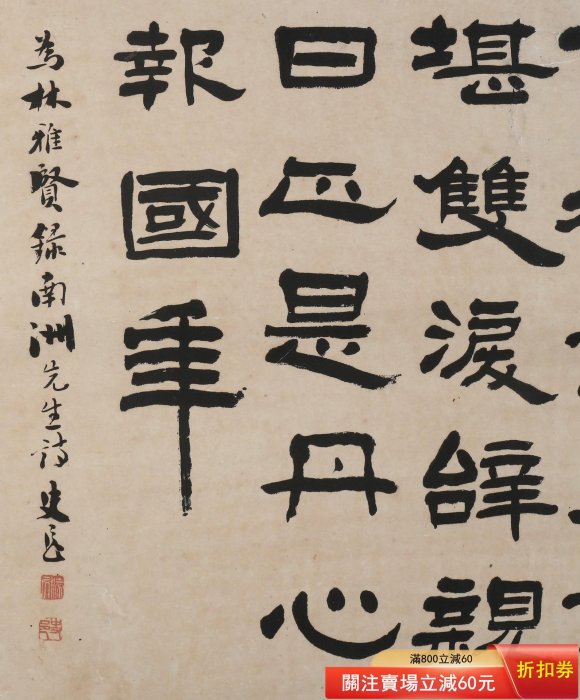 堪雙淚辭親
日正是丹心
報國年
為林雅賢錄南洲先生詩 史邑
滿800立減60
關注賣場立減60元
折扣券